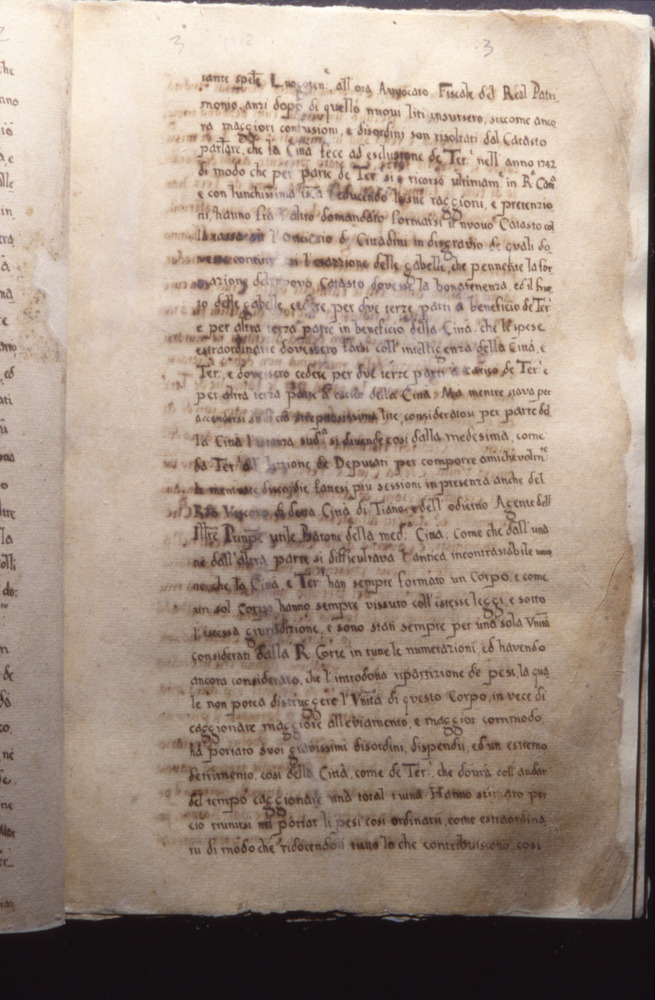 3 3
all' ora Avvocato Fiscale del Real Patri
monio, anzi dopo di quello nuovi liti insursero, siccome anco
ra maggiori confusioni, e disordini son risultati dal Catasto
parlare, che la Città fece ad esclusione de Ter.ⁱ nell' anno 1742
di modo che per parte de Ter.ⁱ si è ricorso ultimam.ᵗᵉ in R.ᵃ Cam.ᵃ
e con lunghissima deducendo le sue raggioni, e pretenzio
ni, hanno fra l' altro domandato formarsi il nuovo Catasto
di Cittadini in disgravio de quali do
l' esazzione delle gabelle, che pennente la for
mazione del nuovo Catasto dovesse la bonatenenza, ed il frut
to delle gabelle, cedere per due terze parti a beneficio de Ter.ⁱ
e per altra terza parte in beneficio della Città, che le spese
estraordinarie dovessero farsi coll' intelligenza della Città, e
Ter.ⁱ, e dovessero cedere per due terze parti a carico de Ter.ⁱ e
per altra terza parte a carico della Città. Ma mentre stava per
accendersi lite, consideratosi per parte del
la Città l' istanza sud.ᵃ si divende così dalla medesima, come
da Ter.ⁱ all' elezzione de Deputati per comporre amichevolm.ᵗᵉ
le mentovate discordie, fattesi più sessioni in presenza anche del
Vescovo di detta Città di Tiano, e dell' odierno Agente dell'
Ill.ʳᵉ Principe utile Barone della med.ᵃ Città. Come che dall' una
ne dall' altra parte si difficultava l' antica incontrastabile unio
ne che la Città, e Ter.ⁱ han sempre formato un Corpo, e come
un sol Corpo hanno sempre vissuto coll' istesse leggi, e sotto
l' istessa giurisdizione, e sono stati sempre per una sola Unità
considerati dalla R. Corte in tutte le numerazioni, ed havendo
ancora considerato, che l' introdotta ripartizione de pesi, la qua
le non potea distruggere l' Unità di questo Corpo, in vece di
caggionare maggiore alleviamento, e maggior commodo,
ha portato suoi gravissimi disordini, dispendii, ed un estremo
detrimento, così della Città, come de Ter.ⁱ, che dovrà coll' andar
del tempo caggionare una total ruina. Hanno stimato per
ciò riunirsi nel portar li pesi così ordinarii, come estraordina
rii di modo che riducendosi tutto lo che contribuiscono così